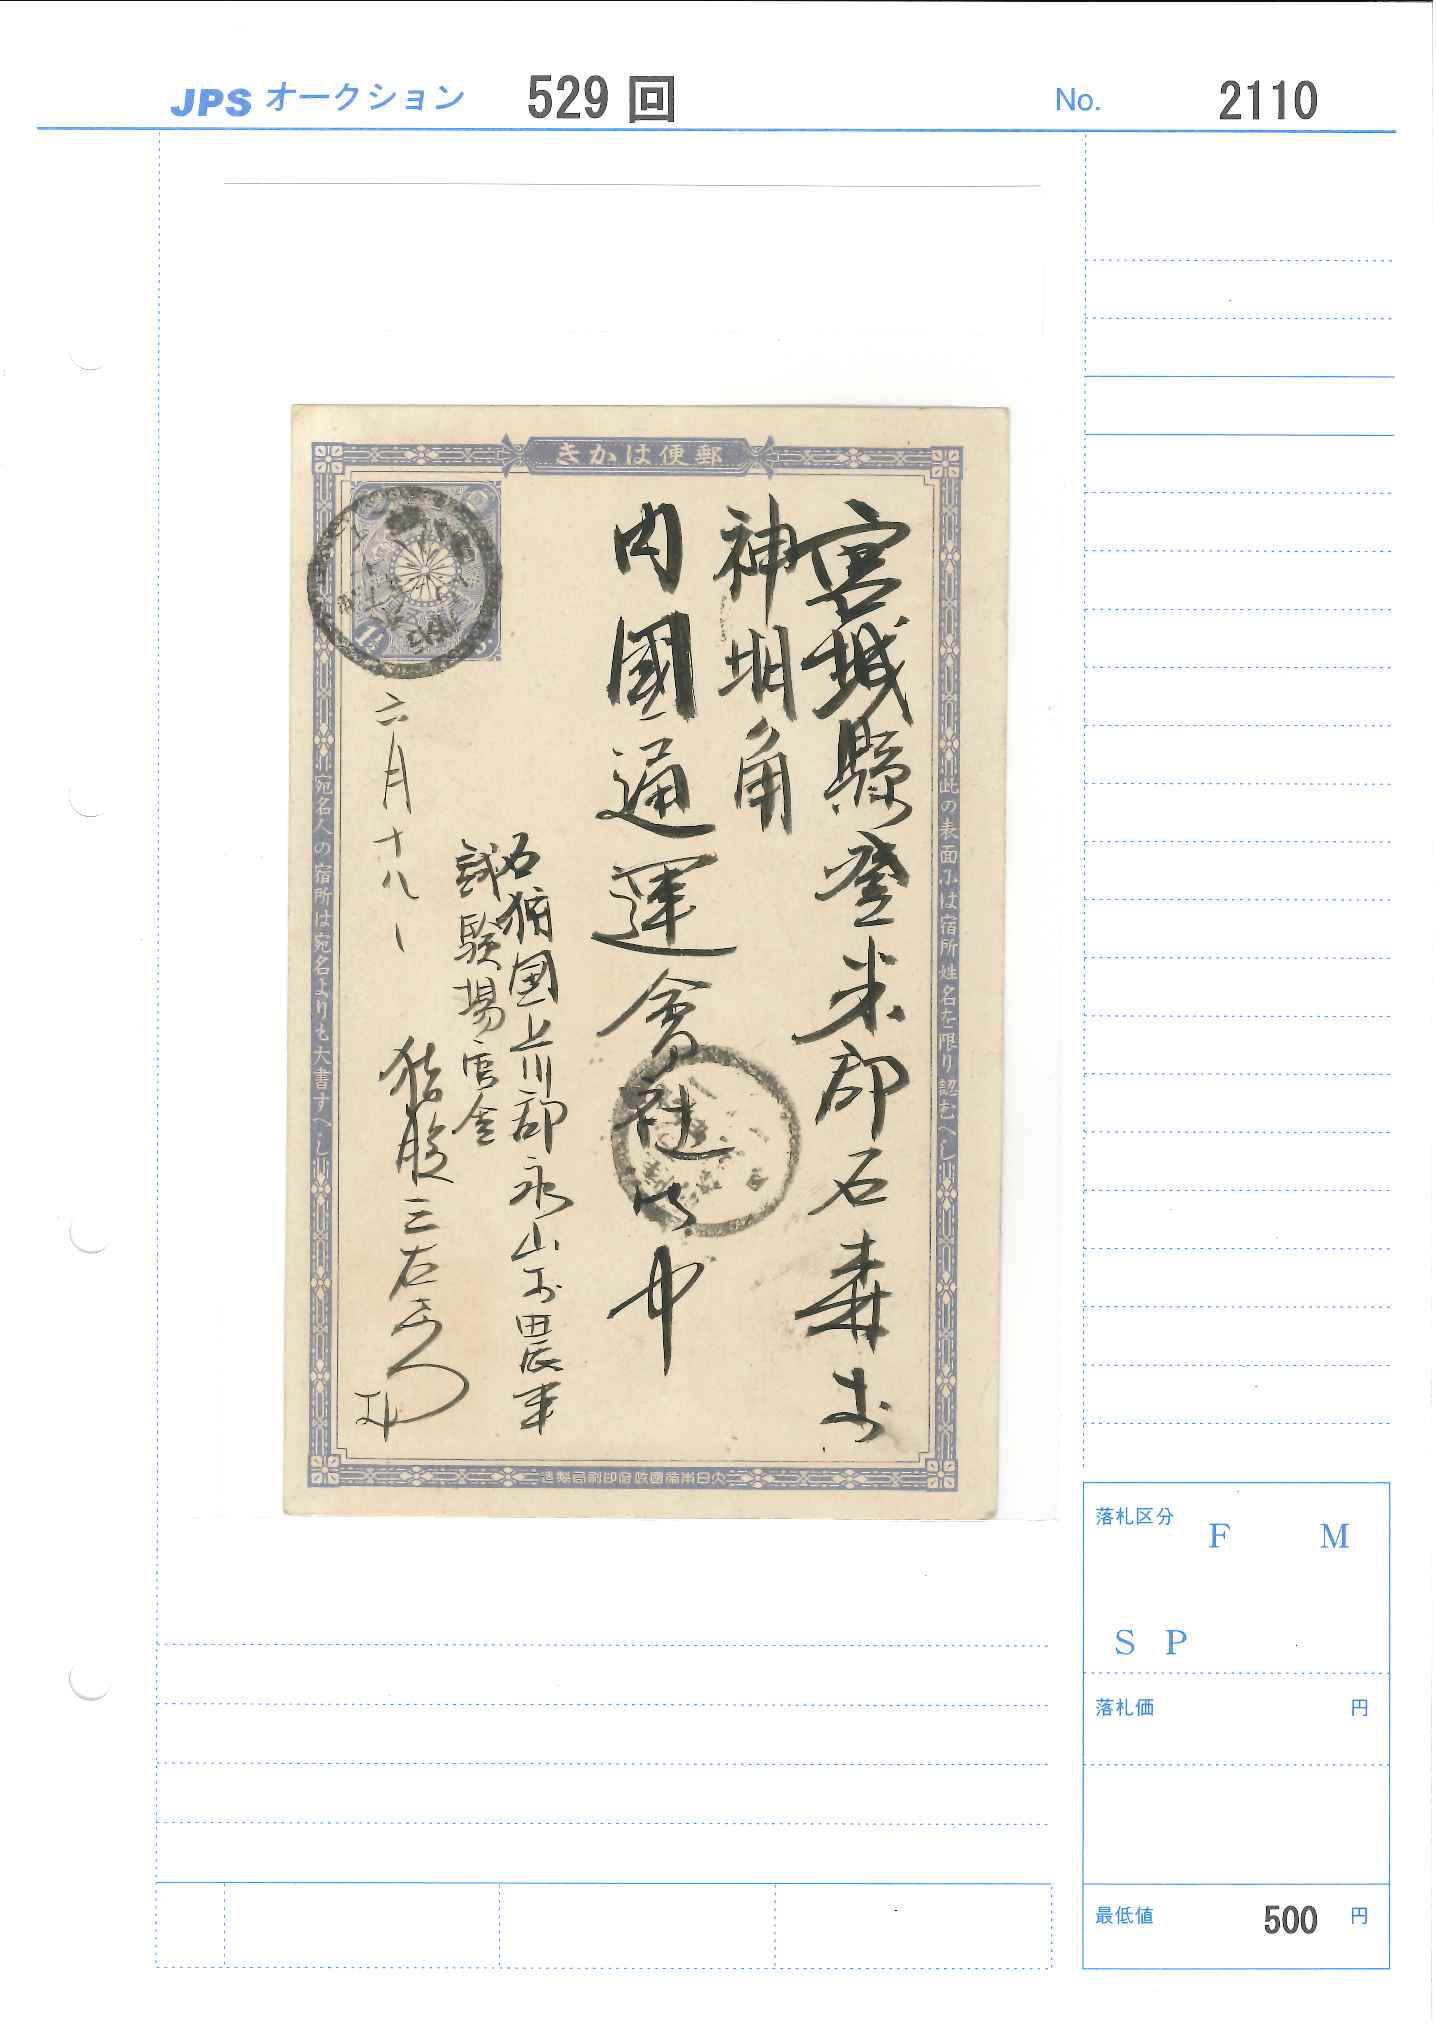 JPS オークション 529 回 No. 2110
郵便はかき
此の表面には宿所姓名を限り認むへし
宮城縣登米郡石森村
神明角
内國通運會社御中
石狩国上川郡永山村農事
試験場官舎
六月十八日
宛名人の宿所は宛名よりも大書すへし
大日本帝國政府印刷局製造
落札区分
F M
S P
落札価 円
最低値 500 円